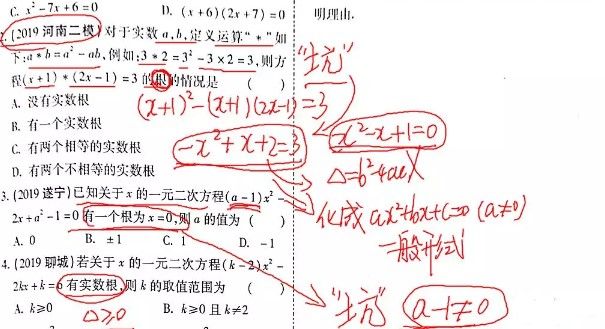 C. x²-7x+6=0 D. (x+6)(2x+7)=0
明理由.
2. (2019 河南二模)对于实数 a,b,定义运算"*"如
下:a*b=a²-ab,例如:3*2=3²-3×2=3,则方
程(x+1)*(2x-1)=3 的根的情况是 ( )
"土亢"
A. 没有实数根
(x+1)²-(x+1)(2x-1)=3
B. 有一个实数根
C. 有两个相等的实数根
-x²+x+2=3
x²-x+1=0
D. 有两个不相等的实数根
Δ=b²-4ac
3. (2019 遂宁)已知关于 x 的一元二次方程(a-1)x²-
2x+a²-1=0 有一个根为 x=0,则 a 的值为 ( )
化成 ax²+bx+c=0 (a≠0)
一般形式
A. 0 B. ±1 C. 1 D. -1
4. (2019 聊城)若关于 x 的一元二次方程(k-2)x²-
2kx+k=6 有实数根,则 k 的取值范围为 ( )
"土亢" a-1≠0
A. k≥0 B. k≥0 且 k≠2
Δ≥0